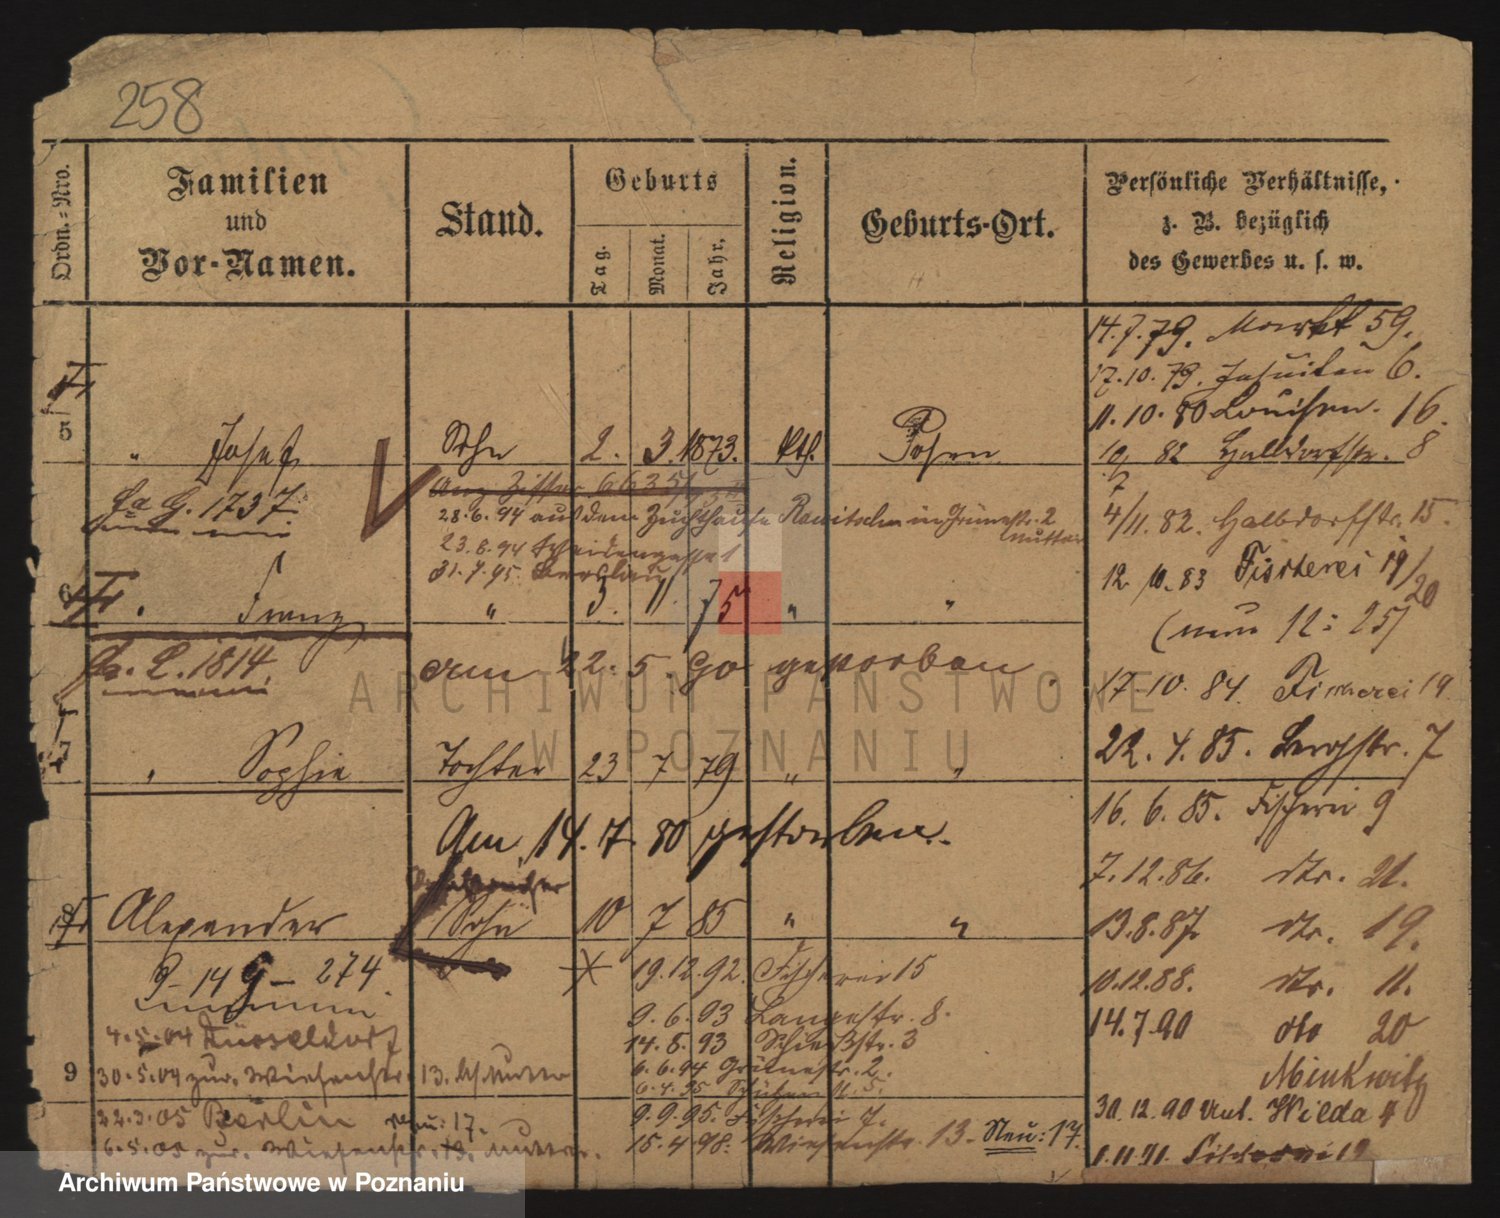 258
Ordn.-Nro.
Familien
und
Vor-Namen.
Stand.
Geburts
Tag.
Monat.
Jahr.
Religion.
Geburts-Ort.
Persönliche Verhältnisse,
z. B. bezüglich
des Gewerbes u. s. w.
14.7.79. Markt 59.
17.10.79. Jesuiten 6.
11.10.80 Louisen. 16.
5
" Josef Sohn 2. 3. 1873. kth. Posen
10/7 82 Halbdorfstr. 8
G. 1737.
28.6.94 aus dem Zuchthause Rawitsch in Grünestr. 2
Mutter
4/11.82. Halbdorfstr. 15.
23.8.94
31.7.95. Breslau
12. 10. 83 Fischerei 19/20
6
" Franz " 3. 11. 75 " "
(nun 12: 25)
1814.
am 22. 5. gestorben.
17.10.84. Fischerei 19
7
" Sophie Tochter 23 7 79 " "
22.4.85. Bergstr. 7
16.6.85. Fischerei 9
Am 14.7.80 gestorben.
7.12.86. dto. 21.
8
Alexander Sohn 10 7 85 " "
13.8.87. dto. 19.
9-149-274
19.12.92. Fischerei 15
10.12.88. dto. 11.
9.6.93 Langestr. 8.
14.7.90 dto 20
4.5.04 Düsseldorf
14.8.93 Schießstr. 3
9
30.5.04 zur. Wiesenstr. 13. Mutter
6.6.94 Grünestr. 2.
Minkwitz
6.4.95 Schützen 5.
22.3.05 Berlin neu: 17.
9.9.95. Fischerei 7.
30.12.90 Wilda 4
6.5.05 zur. Wiesenstr. 13. Mutter.
15.4.98. Wiesenstr. 13. Neu: 17.
1.11.91. Fischerei 19
ARCHIWUM PAŃSTWOWE
W POZNANIU
Archiwum Państwowe w Poznaniu